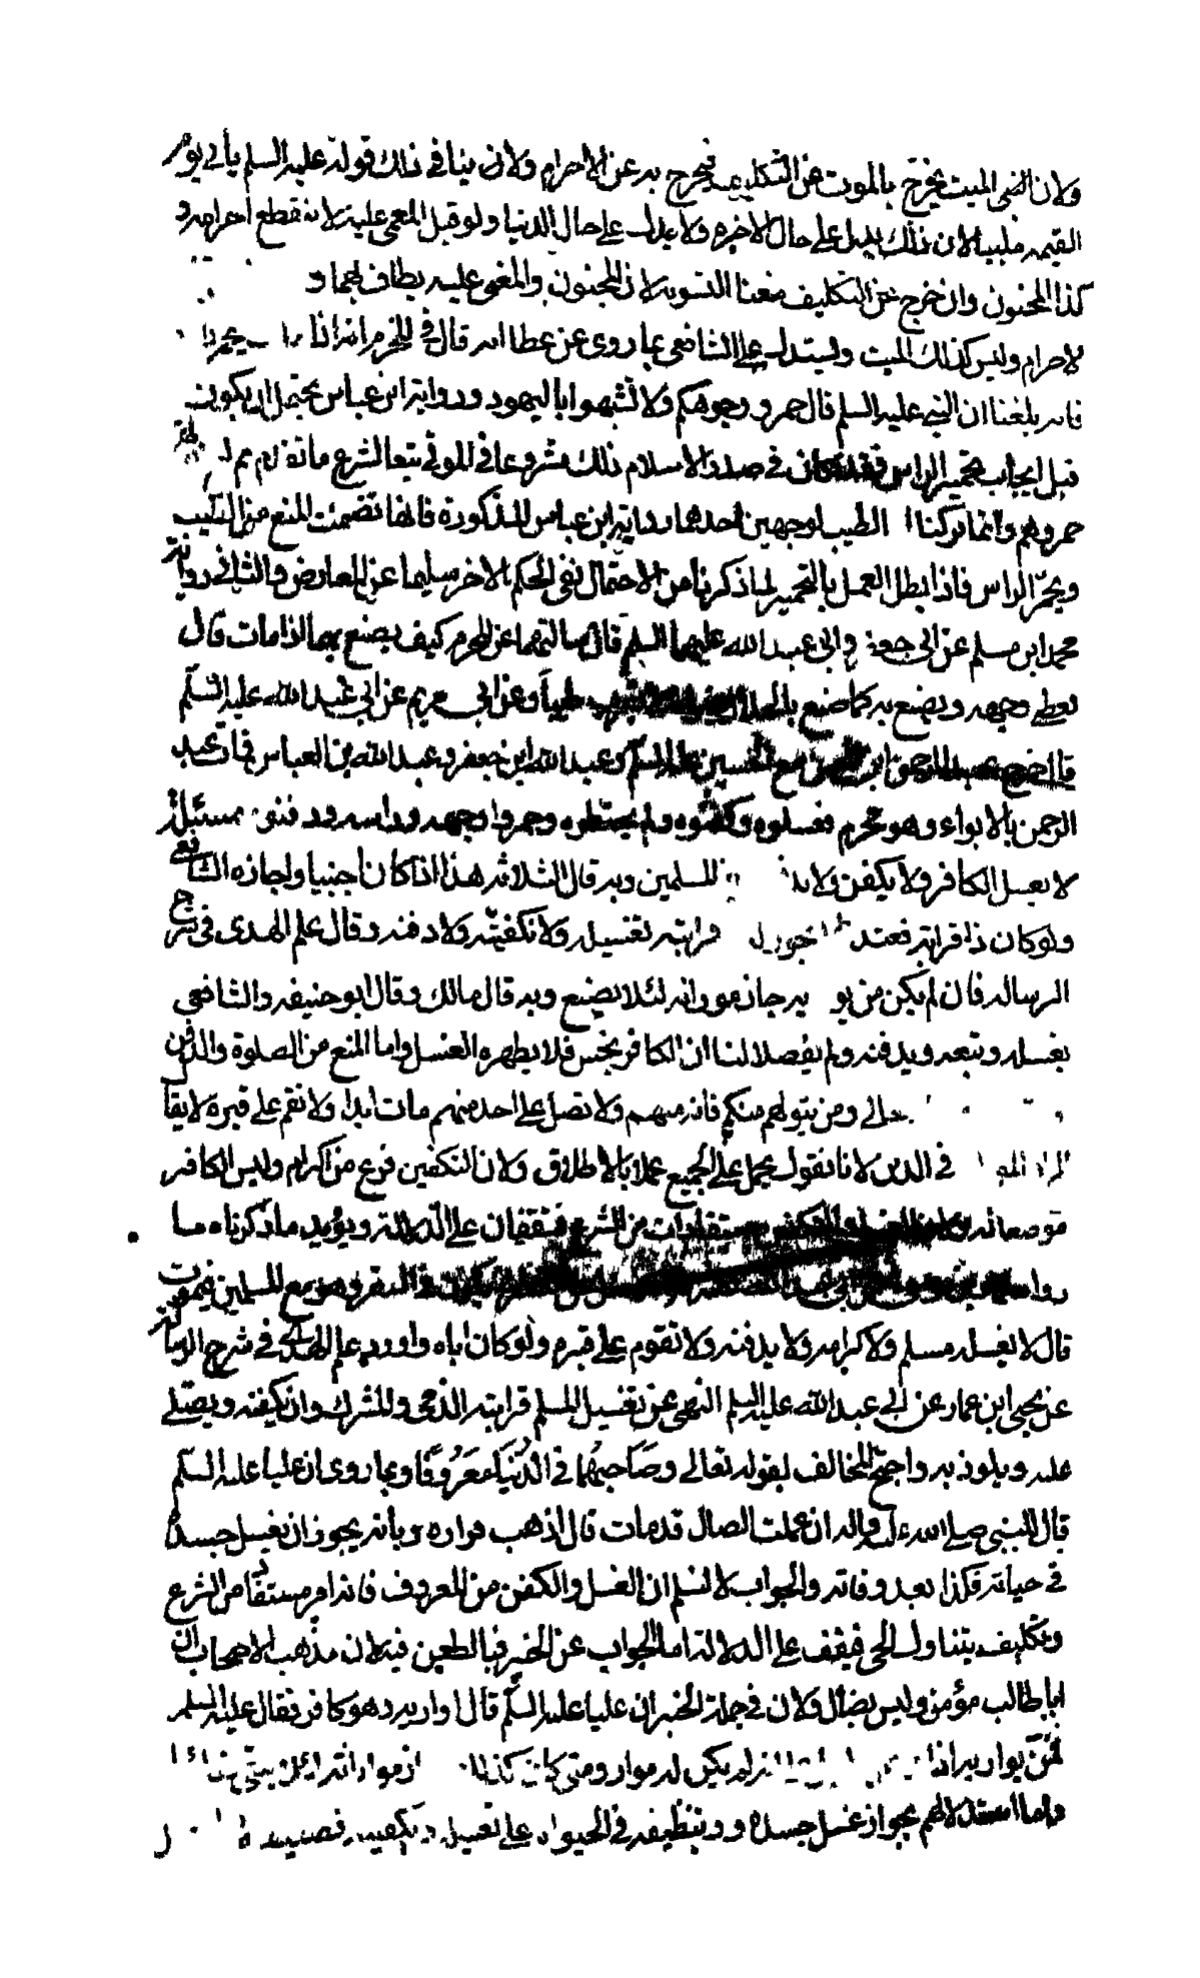 ولان النبي الميت يخرج بالموت عن التكليف فيخرج به عن الاحرام ولان ينافي ذلك قوله عليه السلم يأتي يوم
القيمه ملبيا لان ذلك يدل على حال الاخره ولا يدل على حال الدنيا ولو قيل المغمى عليه لا ينقطع احرامه و
كذا المجنون وان خرج عن التكليف منعنا التسويه لان المجنون والمغمى عليه يطاف بهما و
لاحرام وليس كذلك الميت ويستدل على الشافعي بما روى عن عطا انه قال في المحرم اذا
فانه بلغنا ان النبي عليه السلم قال خمرو وجوهكم ولا تشبهوا باليهود ورواية ابن عباس يحتمل ان يكون
قبل ايجاب تخمير الراس فقد كان في صدر الاسلام ذلك مشروعا في الموتى تبعا لشرع ما تقدم
خمروهم وانما تركنا الطيب لوجهين احدهما رواية ابن عباس المذكورة فانها تضمنت المنع من الطيب
وتخمر الراس فاذا بطل العمل بالتخمير لما ذكرنا من الاحتمال نفى الحكم الاخر سليما عن المعارض والثاني رواية
محمد ابن مسلم عن ابي جعفر وابي عبد الله عليهما السلم قال سالتهما عن المحرم كيف يصنع به اذا مات قال
يغطى وجهه ويصنع به كما يصنع بالحلال طيبا وعن ابي مريم عن ابي عبد الله عليه السلم
قال خرج عبد الرحمن ابن الحسن مع الحسين عليه السلم وعبد الله ابن جعفر وعبد الله بن العباس فمات عبد
الرحمن بالابواء وهو محرم فغسلوه وكفنوه ولم يحنطوه وخمروا وجهه وراسه ودفنوه مسئلة
لا يغسل الكافر ولا يكفن ولا للمسلمين وبه قال الثلاثه هذا اذا كان اجنبيا واجازه الشافعي
ولو كان ذا قرابة فعند قرابته تغسيله ولا تكفينه ولا دفنه وقال علم الهدى في شرح
الرساله فان لم يكن من جاز مواراته لئلا يضيع وبه قال مالك وقال ابو حنيفه والشافعي
يغسله ويتبعه ويدفنه ولم يفصلا لنا ان الكافر نجس فلا يطهره الغسل واما المنع من الصلوة والدفن
ومن يتولهم منكم فانه منهم ولا تصل على احد منهم مات ابدا ولا تقم على قبره لا يقال
في الدين لانا نقول يحمل على الجميع عملا بالاطلاق ولان التكفين نوع من اكرام وليس الكافر
موضعا له مستفادات من الشرع فيقفان على الدلالة ويؤيد ما ذكرناه ما
السفر وهو مع المسلمين فيموت
قال لا يغسله مسلم ولا كرامه ولا يدفنه ولا تقوم على قبره ولو كان اباه واورد علم الهدى في شرح الرسالة
عن يحيى ابن عمار عن ابي عبد الله عليه السلم النهي عن تغسيل المسلم قرابته الذمي والمشرك وان يكفنه ويصلي
عليه ويلوذ به واحتج المخالف بقوله تعالى وصاحبهما في الدنيا معروفا وبما روى ان عليا عليه السلم
قال للنبي صلى الله عليه واله ان عمك الضال قد مات قال اذهب فواره وبانه يجوز ان يغسل جسده
في حياته فكذا بعد وفاته والجواب لا نسلم ان الغسل والكفن من المعروف فانه امر مستفاد من الشرع
وتكليف يتناول الحي فيقف على الدلالة اما الجواب عن الخبر فبالطعن فيه لان مذهب الاصحاب ان
ابا طالب مؤمن وليس بضال ولان في جملة الخبر ان عليا عليه السلم قال اواريه وهو كافر فقال عليه السلم
فمن يواريه اذا لم يكن له موار ومتى كان كذلك
واما استدلالهم بجواز غسل جسده وتنظيفه في الحيوة على تغسيله وتكفينه